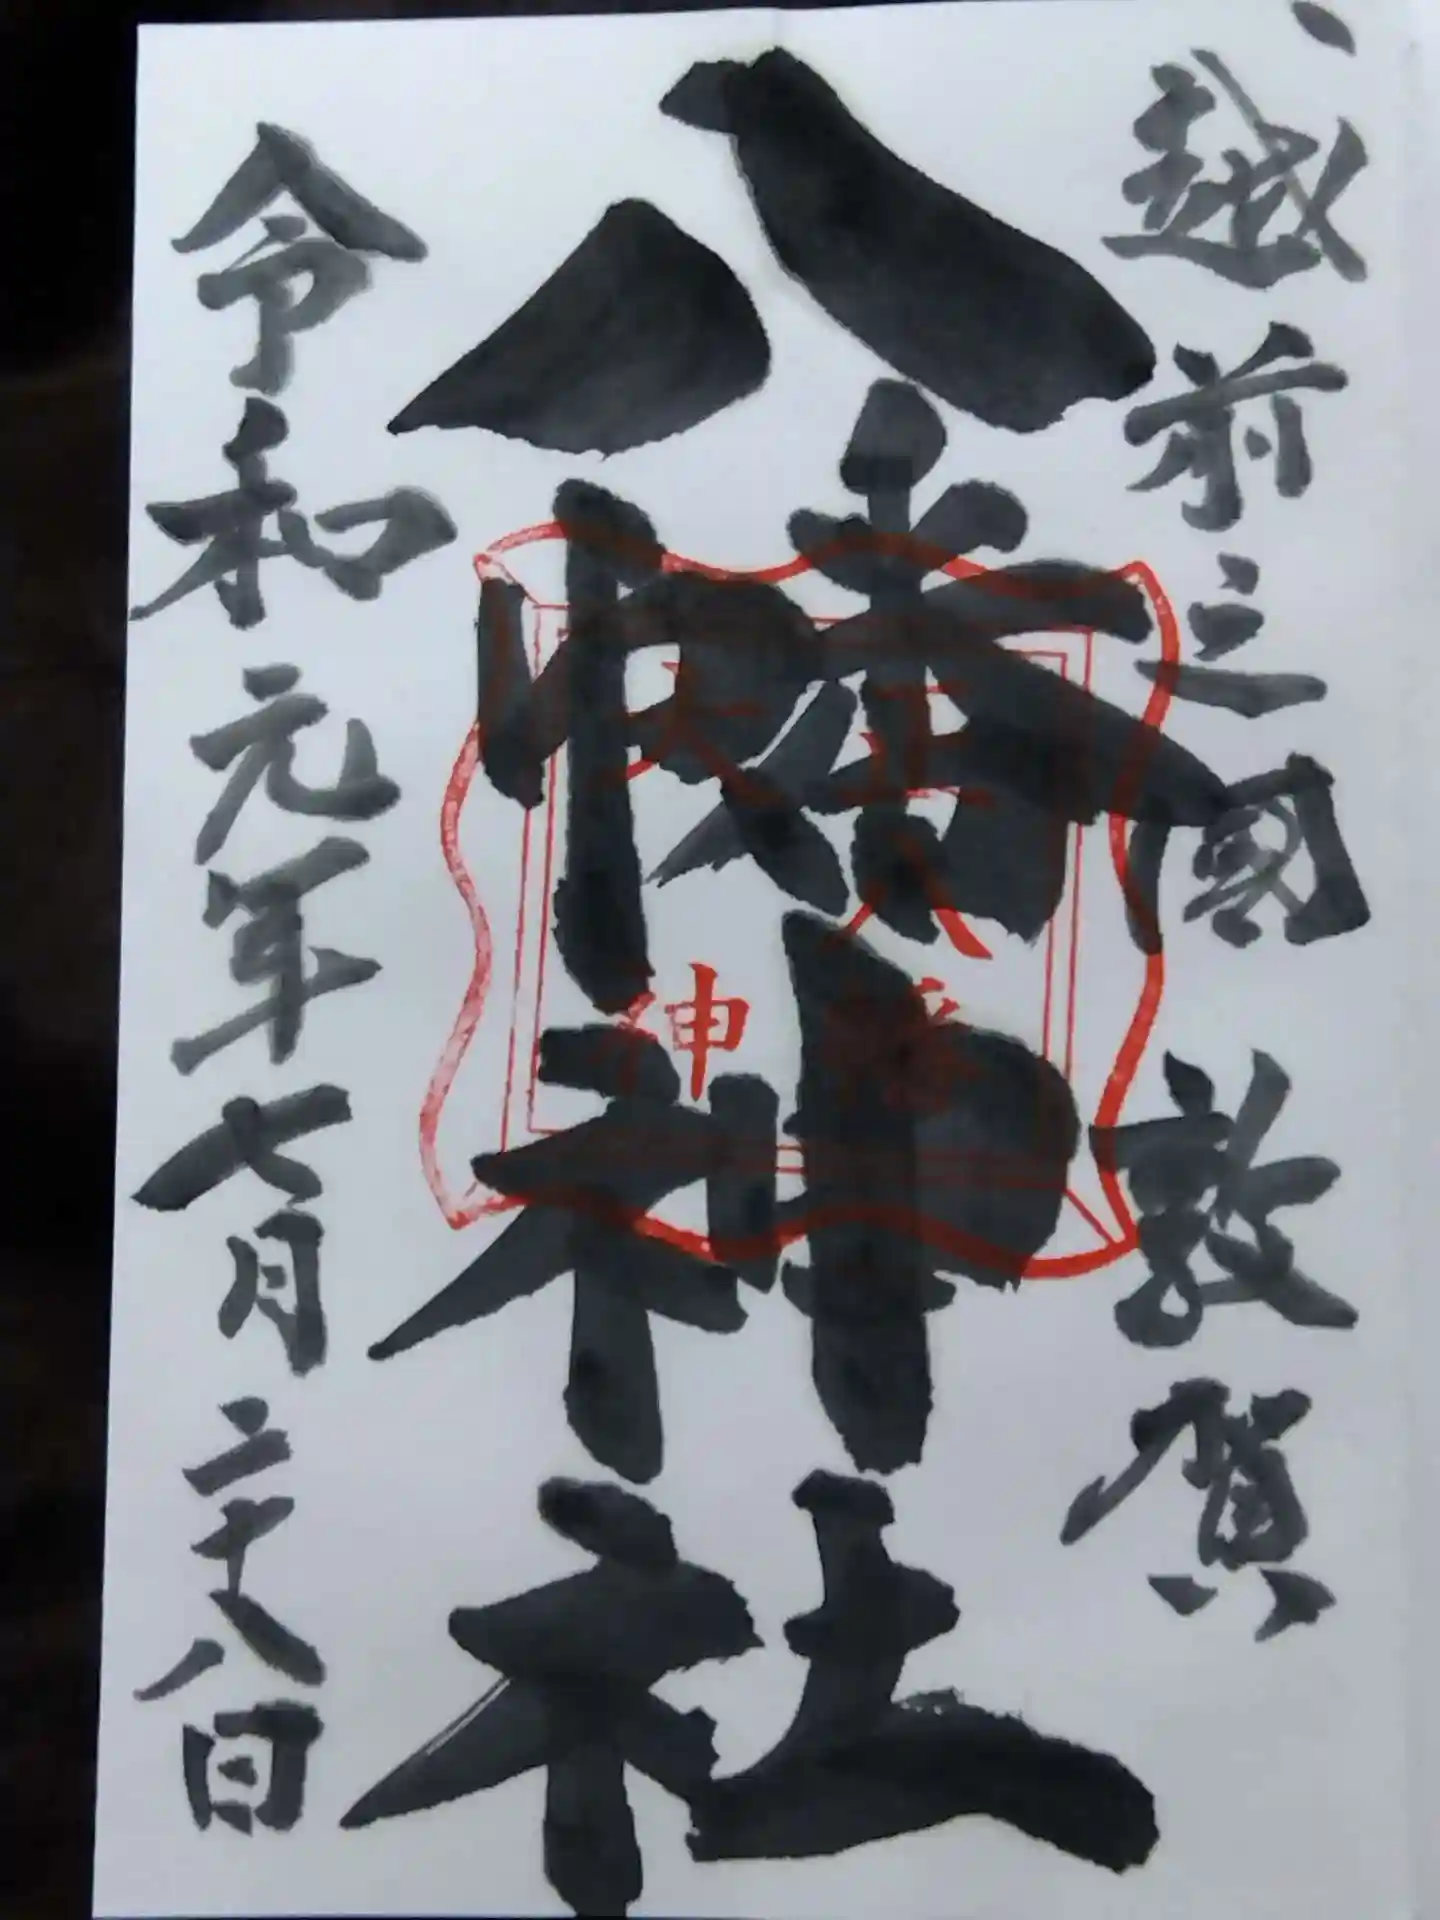 越前之國　敦賀
八幡神社
正八幡
大神
令和元年七月二十八日